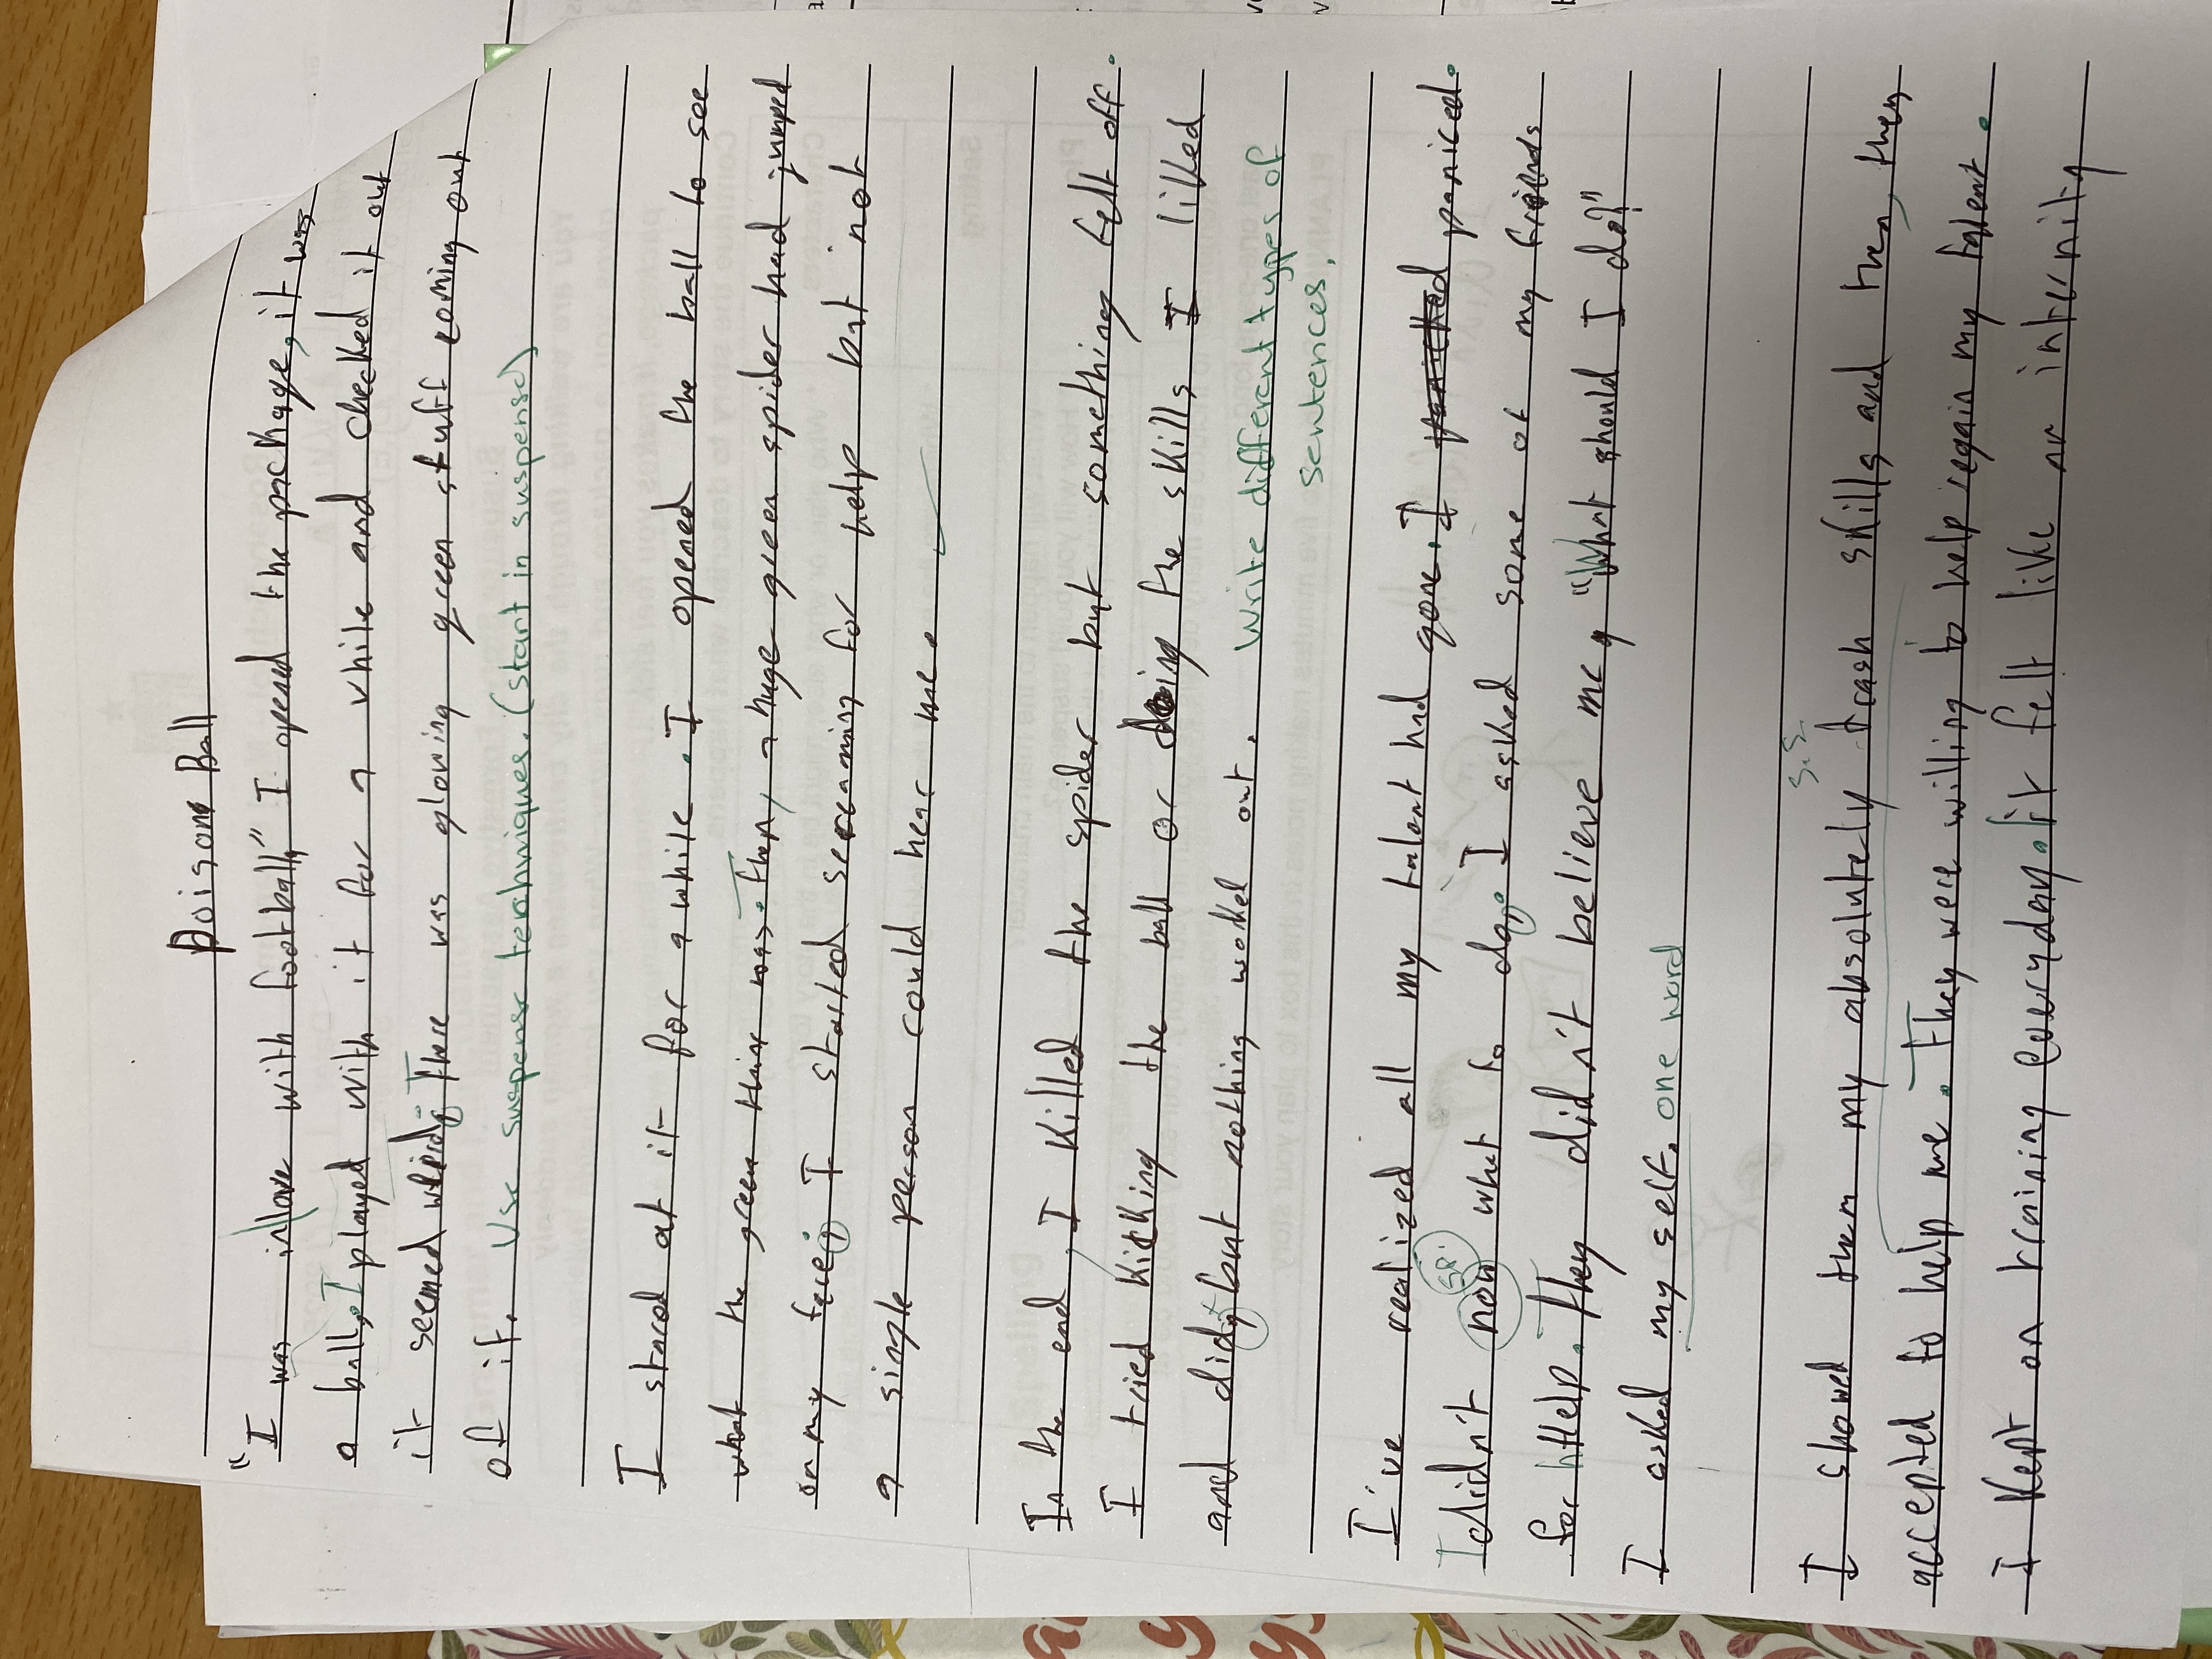 Poison Ball
"I was inlove with football," I opened the package, it was
a ball, I played with it for a while and checked it out
it seemed weird. There was glowing green stuff coming out
of it. Use suspense techniques. (start in suspense)
I stared at it for a while. I opened the ball to see
what the green thing was. Then, a huge green spider had jumped
on my face. I started screaming for help but not
a single person could hear me.
In the end, I killed the spider but something felt off.
I tried kicking the ball or doing the skills I liked
and didn't but nothing worked out. Write different types of
sentences.
I've realized all my talent had gone. I paniced.
I didn't now what to do. I asked some of my friends
sp.
for help. They did n't believe me, "What should I do?"
I asked my self. one word
I showed them my absolutely trash skills and then, they
S.S
accepted to help me. They were willing to help regain my talent.
I kept on training everyday. It felt like an